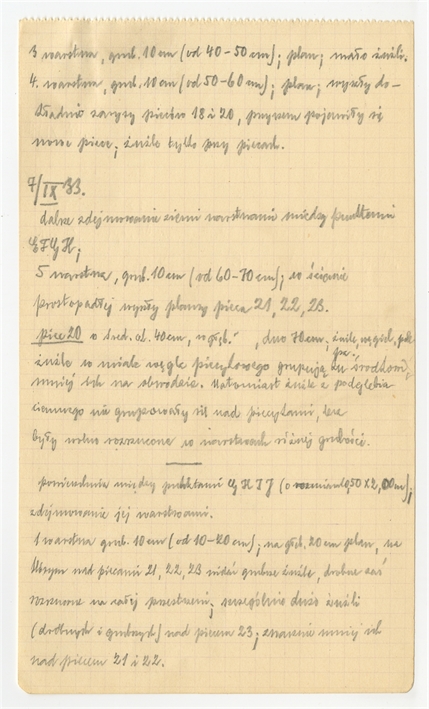 3 warstwa, grub. 10 cm (od 40-50 cm); plan; mało żużli.
4. warstwa, grub. 10 cm (od 50-60 cm); plan; wyszły do-
kładnie zarysy pieców 18 i 20, przyczem pojawiły się
nowe piece; żużle tylko przy piecach.
7/IX 33.
dalsze zdejmowanie ziemi warstwami między punktami
EFGH;
5 warstwa, grub. 10 cm (od 60-70 cm); w ścianie
prostopadłej wyszły plamy pieca 21, 22, 23.
piec 20 o śred. ok. 40 cm, w głęb. " , dno 70 cm,
żużle w miale węgle piecykowego grupują się środkowo,
mniej ich na obwodzie. Natomiast żużle z podglebia
ciemnego nie grupowały się nad piecykami, lecz
były wolno rozrzucone w warstwach różnej grubości.
poniedziałek między punktami G H I J (o rozmiarze 0,50 x 2,00 m);
zdejmowanie jej warstwami.
1 warstwa grub. 10 cm (od 10-20 cm); na głęb. 20 cm plan, na
którym nad piecami 21, 22, 23 widać grubsze żużle, drobne zaś
rozrzucone na całej przestrzeni; szczególnie dużo żużli
(drobnych i grubszych) nad piecem 23; znacznie mniej ich
nad piecem 21 i 22.